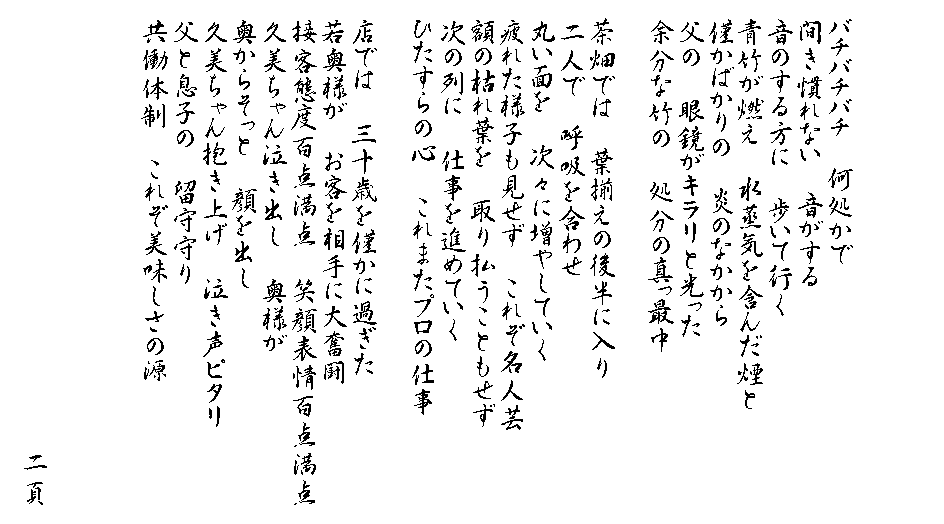 バチバチバチ　何処かで
聞き慣れない　音がする
音のする方に　歩いて行く
青竹が燃え　水蒸気を含んだ煙と
僅かばかりの　炎のなかから
父の　眼鏡がキラリと光った
余分な竹の　処分の真っ最中
茶畑では　葉揃えの後半に入り
二人で　呼吸を合わせ
丸い面を　次々に増やしていく
疲れた様子も見せず　これぞ名人芸
額の枯れ葉を　取り払うこともせず
次の列に　仕事を進めていく
ひたすらの心　これまたプロの仕事
店では　三十歳を僅かに過ぎた
若奥様が　お客を相手に大奮闘
接客態度百点満点　笑顔表情百点満点
久美ちゃん泣き出し　奥様が
奥からそっと　顔を出し
久美ちゃん抱き上げ　泣き声ピタリ
父と息子の　留守守り
共働体制　これぞ美味しさの源
二頁